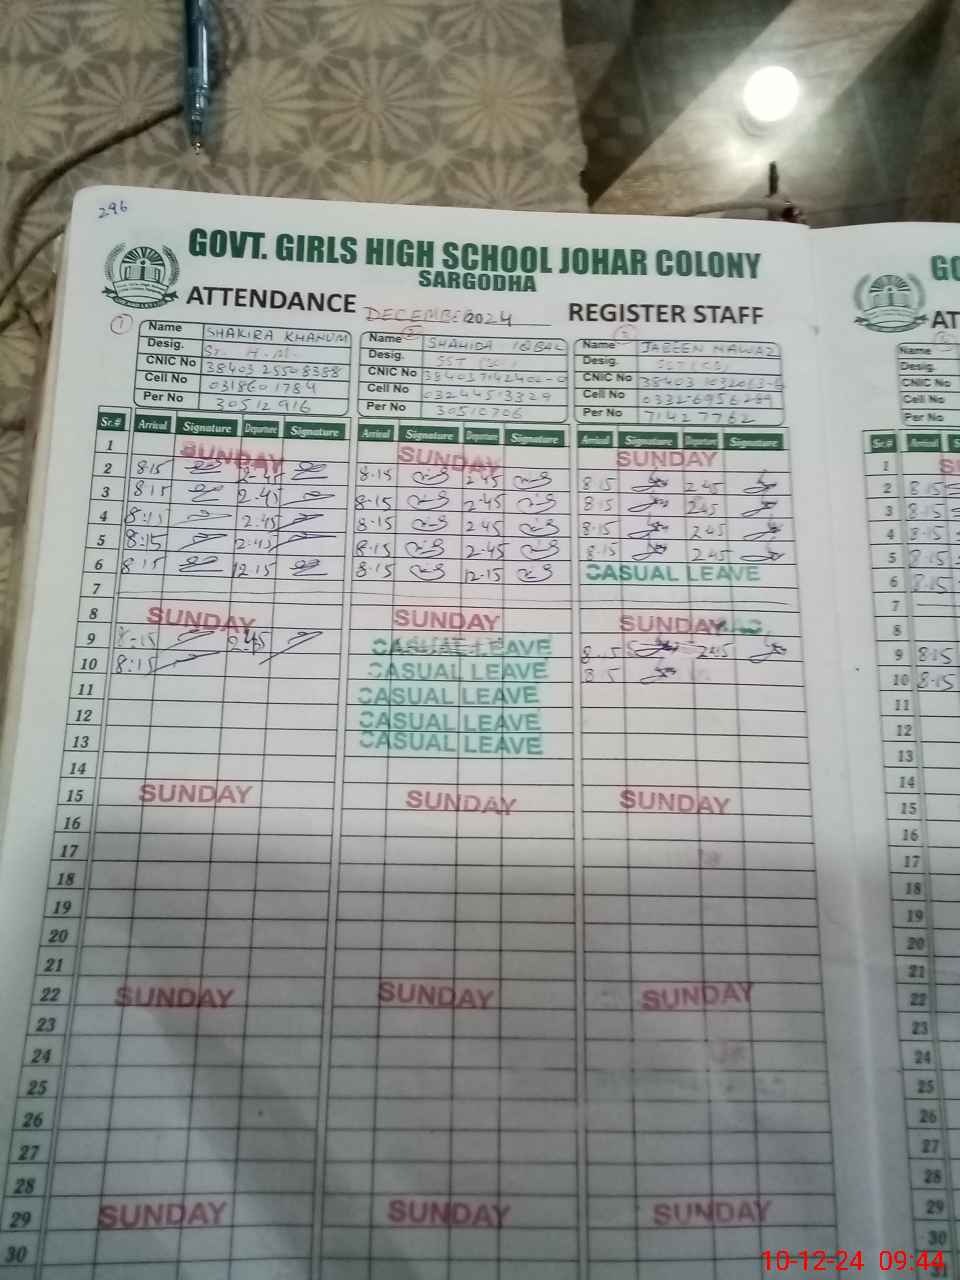 296
GOVT. GIRLS HIGH SCHOOL JOHAR COLONY
SARGODHA
ATTENDANCE DECEMBER 2024 REGISTER STAFF
1 2 3
Name SHAKIRA KHANUM Name SHAHIDA IQBAL Name JABEEN NAWAZ Name
Desig. Sr. H.M. Desig. SST Desig. SST Desig.
CNIC No CNIC No CNIC No CNIC No
Cell No 0318601784 Cell No 03244513329 Cell No Cell No
Per No 30512916 Per No 30510706 Per No 71427762 Per No
Sr.# Arrival Signature Departure Signature Arrival Signature Departure Signature Arrival Signature Departure Signature Sr.# Arrival
1 SUNDAY SUNDAY SUNDAY 1
2 8:15 2-45 8.15 2.45 8.15 2.45 2 8.15
3 8:15 2.45 8.15 2-45 8.15 2.45 3 8.15
4 8:15 2:45 8.15 2.45 8.15 2.45 4 8.15
5 8:15 2:45 8.15 2-45 8.15 2.45 5 8.15
6 8:15 12.15 8.15 12-15 CASUAL LEAVE 6 8.15
7 7
8 SUNDAY SUNDAY SUNDAY 8
9 8:15 2:45 CASUAL LEAVE 8.15 2.45 9 8.15
10 8:15 CASUAL LEAVE 8.15 10 8.15
11 CASUAL LEAVE 11
12 CASUAL LEAVE 12
13 CASUAL LEAVE 13
14 14
15 SUNDAY SUNDAY SUNDAY 15
16 16
17 17
18 18
19 19
20 20
21 21
22 SUNDAY SUNDAY SUNDAY 22
23 23
24 24
25 25
26 26
27 27
28 28
29 SUNDAY SUNDAY SUNDAY 29
30 30
31
10-12-24 09:44